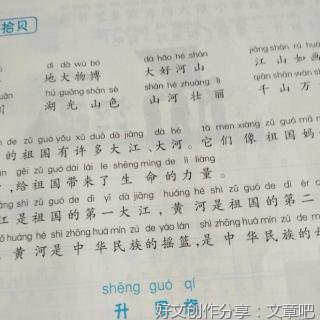 拾贝
dì dà wù bó dà hǎo hé shān jiāng shān rú huà
地大物博 大好河山 江山如画
hú guāng shān sè shān hé zhuàng lì qiān shān wàn
湖光山色 山河壮丽 千山万
de zǔ guó yǒu xǔ duō dà jiāng dà hé tā men xiàng zǔ guó mā
的祖国有许多大江、大河。它们像祖国妈
gěi zǔ guó dài lái le shēng mìng de lì liàng
,给祖国带来了生命的力量。
jiāng shì zǔ guó de dì yī dà jiāng huáng hé shì zǔ guó de dì èr
江是祖国的第一大江,黄河是祖国的第二
huáng hé shì zhōng huá mín zú de yáo lán shì zhōng huá mín zú de
黄河是中华民族的摇篮,是中华民族的
shēng guó qí
升国旗
好文创作分享:文章吧